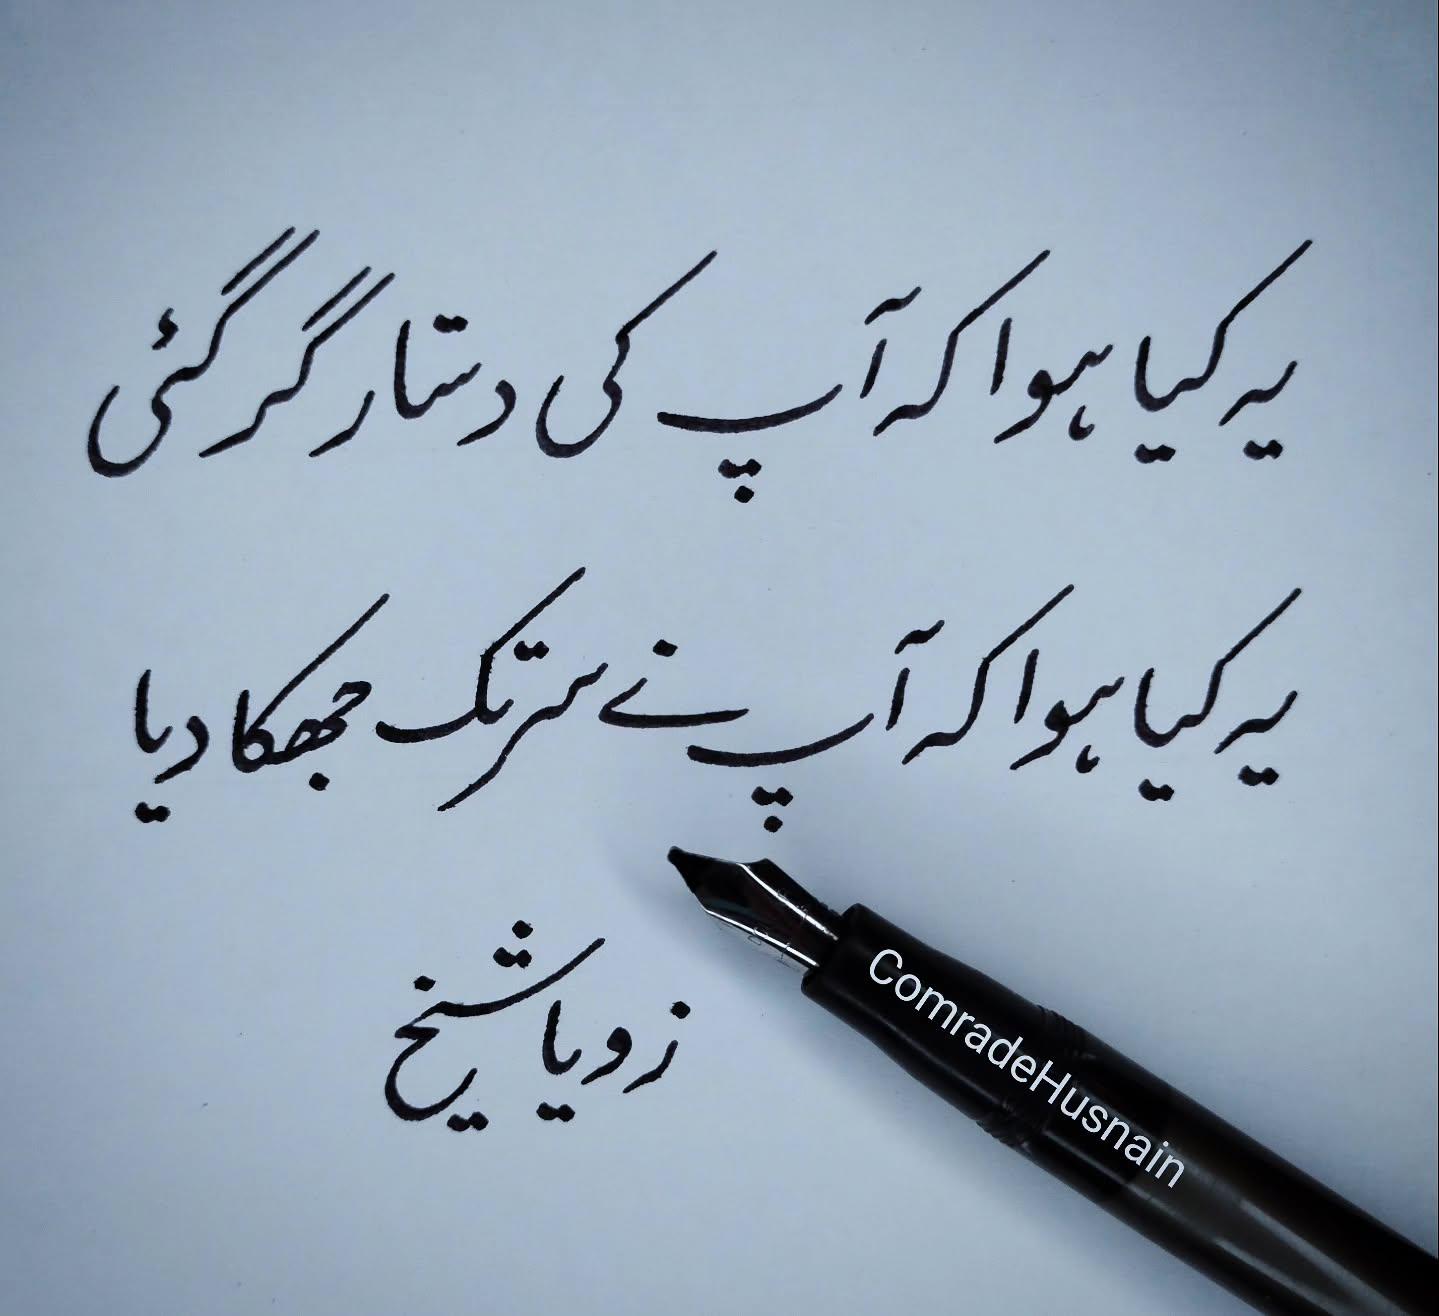 یہ کیا ہوا کہ آپ کی دستار گر گئی
یہ کیا ہوا کہ آپ نے سر تک جھکا دیا
زویا شیخ
ComradeHusnain